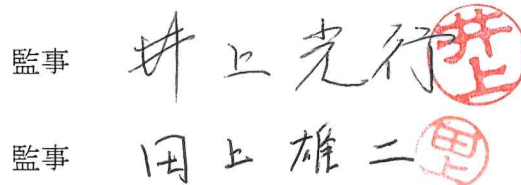 監事 井上光行 井上
監事 田上雄二 田上